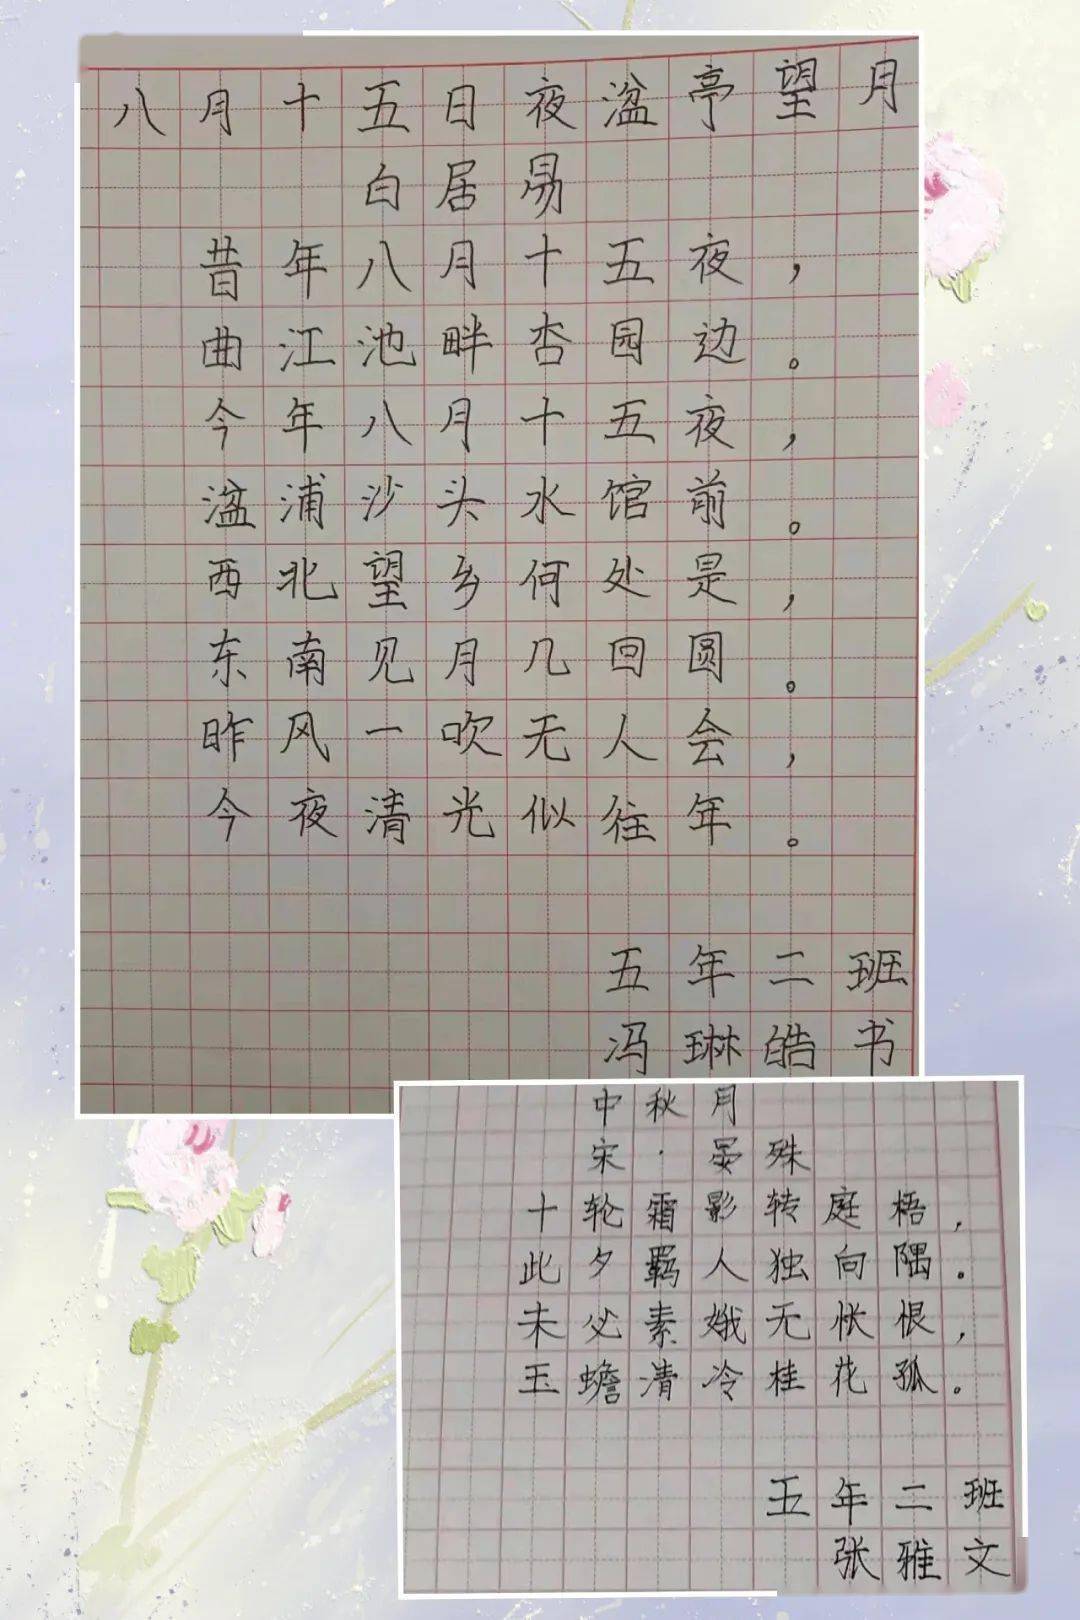 八月十五日夜湓亭望月
白居易
昔年八月十五夜，
曲江池畔杏园边。
今年八月十五夜，
湓浦沙头水馆前。
西北望乡何处是，
东南见月几回圆。
昨风一吹无人会，
今夜清光似往年。
五年二班
冯琳皓书
中秋月
宋·晏殊
十轮霜影转庭梧，
此夕羁人独向隅。
未必素娥无怅恨，
玉蟾清冷桂花孤。
五年二班
张雅文